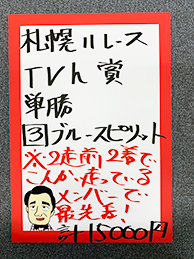 札幌11レース
TVh賞
単勝
3 ブルースピリット
※2走前2着で、
こんか走っている
メンバーで
最先着!
+15000円